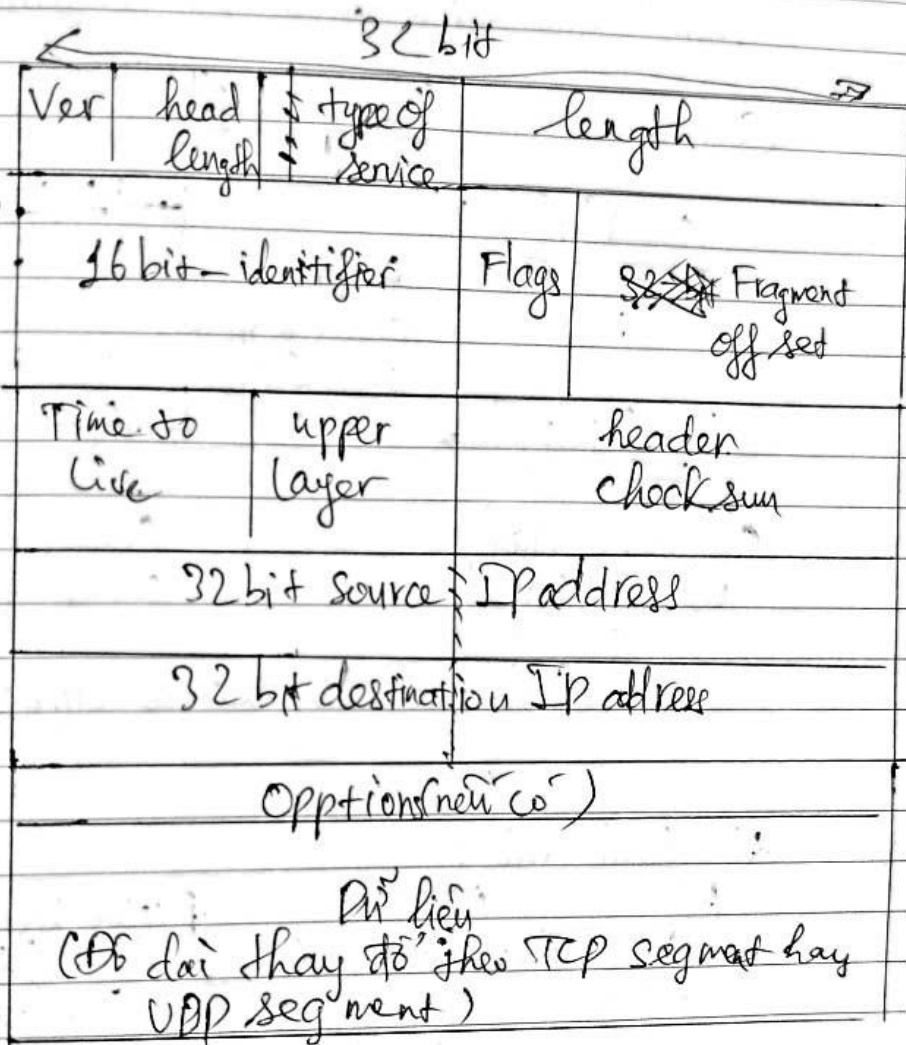 32 bit
Ver head type of length
length service
16 bit - identifier Flags Fragment
off set
Time to upper header
live layer checksum
32 bit source IP address
32 bit destination IP address
Opptions (nếu có)
Dữ liệu
(Độ dài thay đổi theo TCP segment hay
UDP segment)